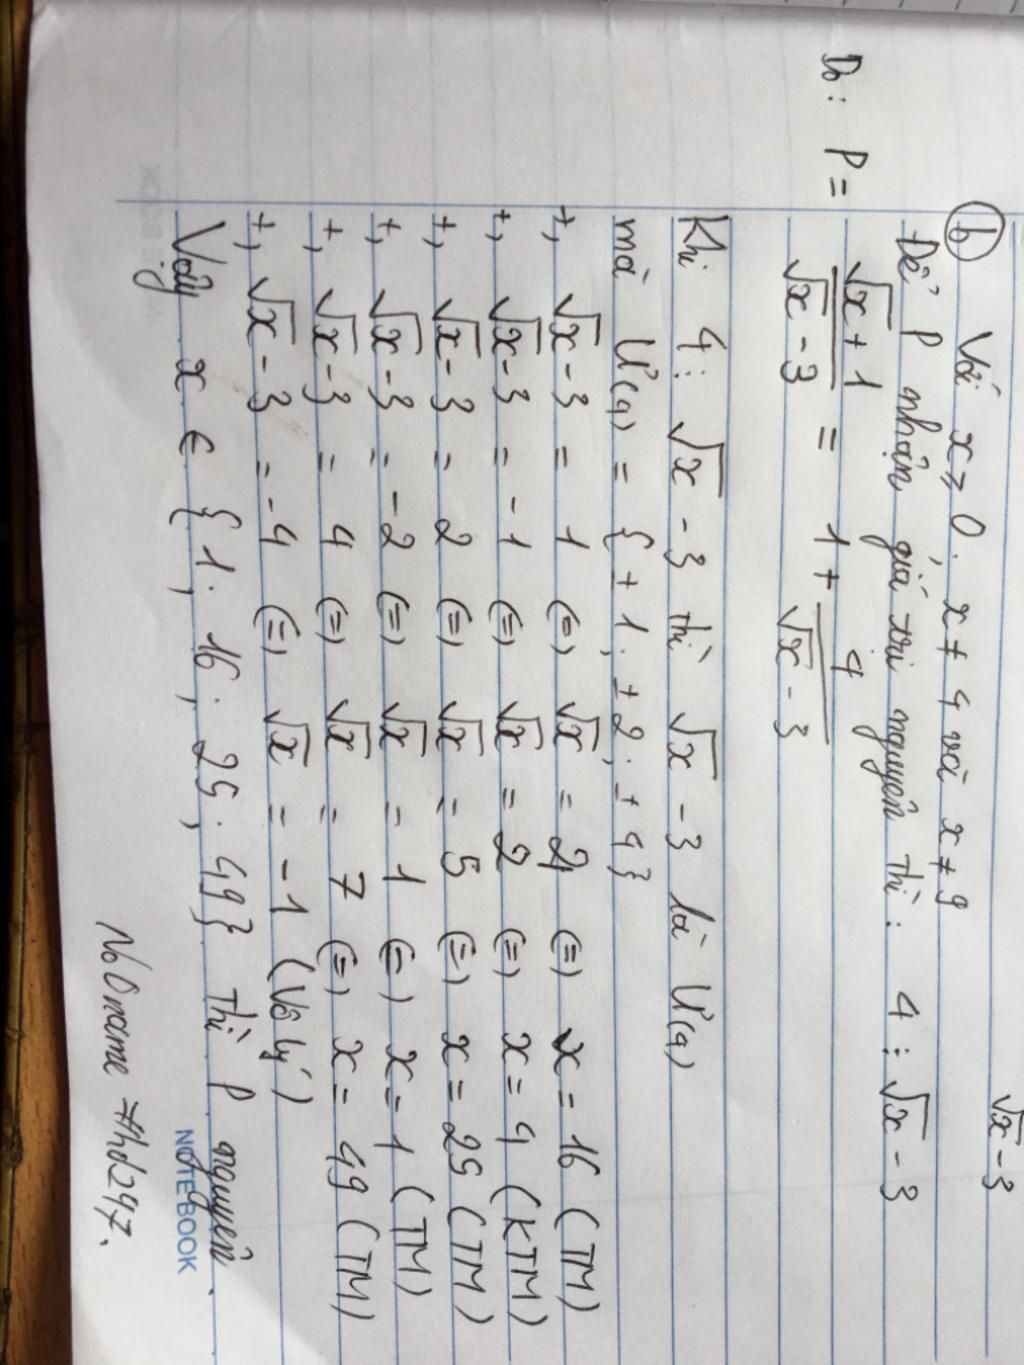 √x - 3
ⓑ Với x ≥ 0; x ≠ 4 và x ≠ 9
Để P nhận giá trị nguyên thì: 4 ⋮ √x - 3
Do: P = (√x + 1)/(√x - 3) = 1 + 4/(√x - 3)
Khi 4 ⋮ √x - 3 thì √x - 3 là Ư(4)
mà Ư(4) = {±1; ±2; ±4}
+, √x - 3 = 1 (=) √x = 4 (=) x = 16 (TM)
+, √x - 3 = -1 (=) √x = 2 (=) x = 4 (KTM)
+, √x - 3 = 2 (=) √x = 5 (=) x = 25 (TM)
+, √x - 3 = -2 (=) √x = 1 (=) x = 1 (TM)
+, √x - 3 = 4 (=) √x = 7 (=) x = 49 (TM)
+, √x - 3 = -4 (=) √x = -1 (Vô lý)
Vậy x ∈ {1; 16; 25; 49} thì P nguyên.
NOTEBOOK
No0name #hd247.